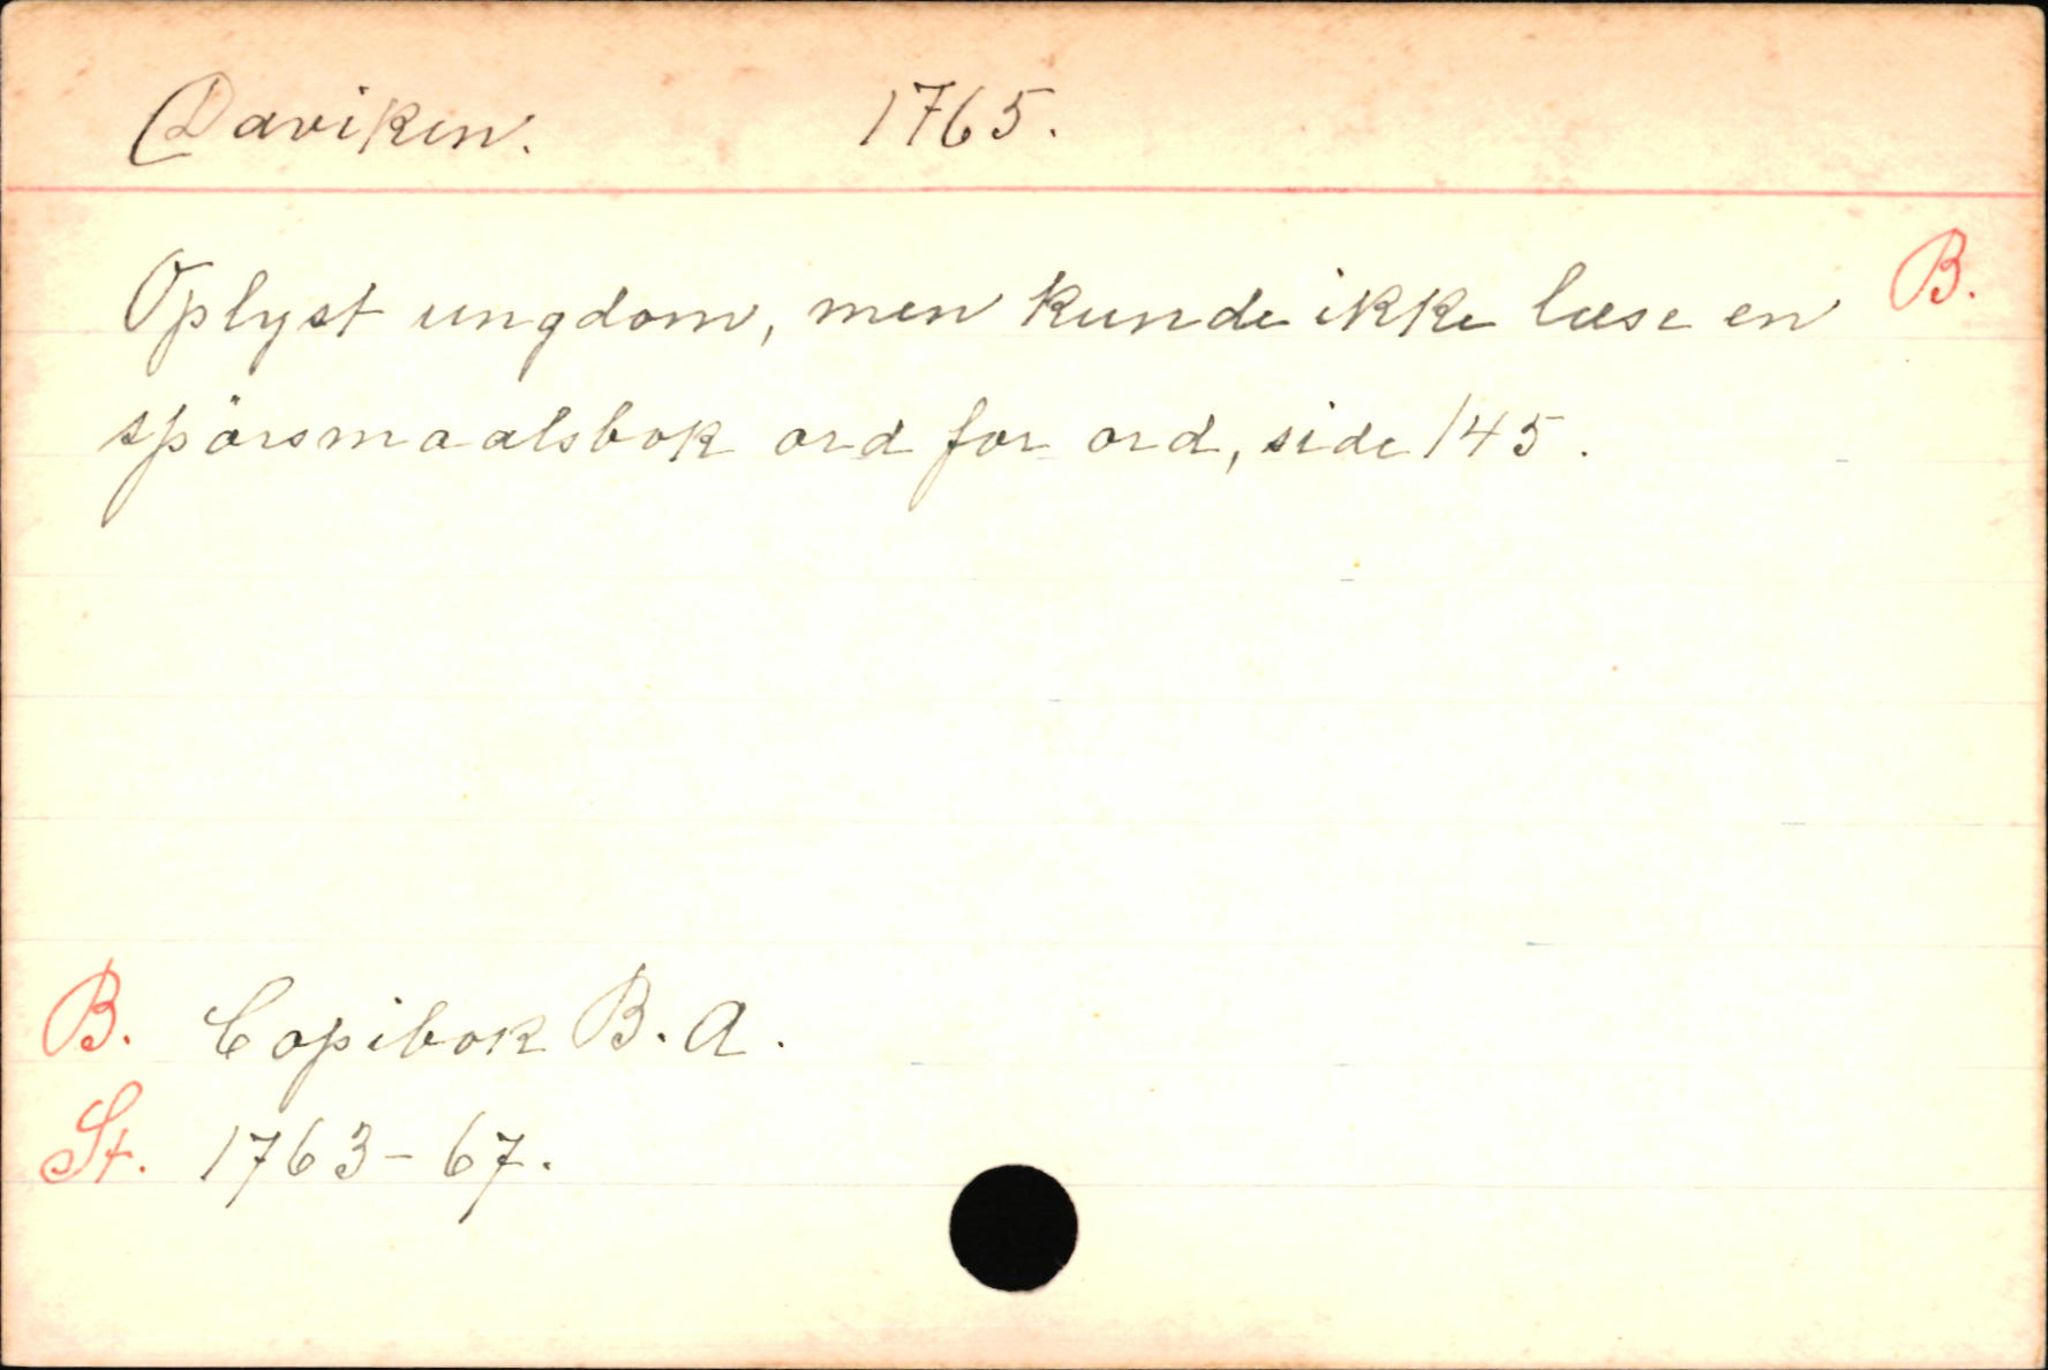 Daviken. 1765.
Oplyst ungdom, men kunde ikke læse en B.
spörsmaalsbok ord for ord, side 145.
B. Copibok B. A.
St. 1763-67.